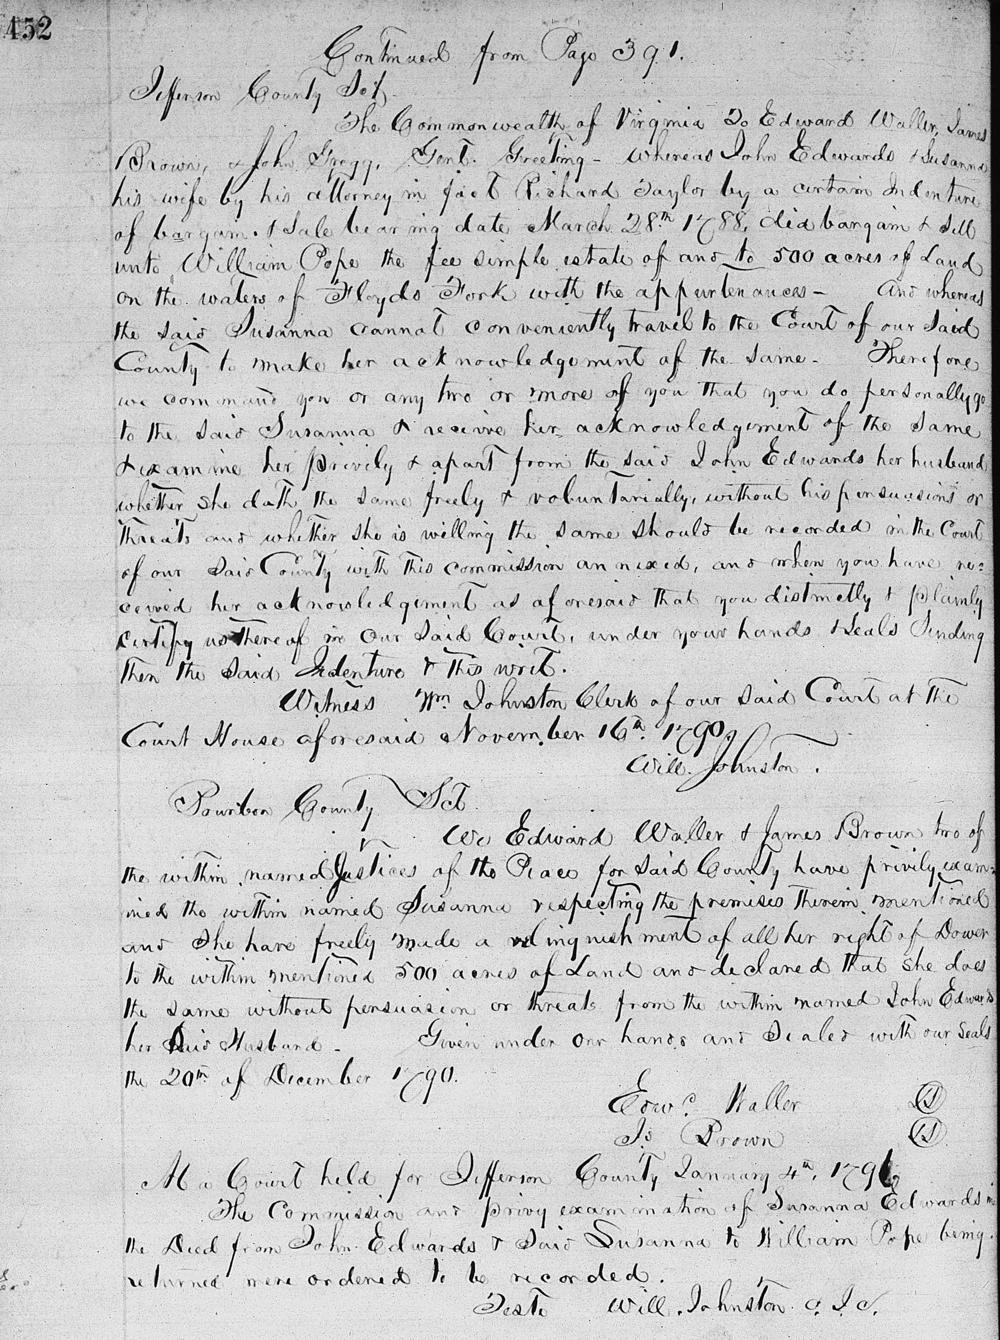 452
Continued from Page 391.
Jefferson County Sct.
The Commonwealth of Virginia To Edward Waller, James
Brown, & John Gregg, Gent. Greeting - Whereas John Edwards & Susanna
his wife by his attorney in fact Richard Taylor by a certain Indenture
of bargain & Sale bearing date March 28th 1788, did bargain & Sell
unto William Pope the fee simple estate of and to 500 acres of Land
on the waters of Floyds Fork with the appurtenances - And whereas
the said Susanna cannot conveniently travel to the Court of our said
County to make her acknowledgement of the same - Therefore
we command you or any two or more of you that you do personally go
to the said Susanna & receive her acknowledgement of the same
& examine her privily & apart from the said John Edwards her husband
whether she doth the same freely & voluntarially, without his persuasions or
threats and whether she is willing the same should be recorded in the Court
of our said County with this commission annexed, and when you have re=
ceived her acknowledgement as aforesaid that you distinctly & plainly
certify us thereof in our said Court, under your hands & Seals Sending
then the said Indenture & this writ.
Witness Wm Johnston Clerk of our said Court at the
Court House aforesaid November 16th 1790,
Will. Johnston.
Bourbon County Sct.
We Edward Waller & James Brown two of
the within named Justices of the Peace for said County have privily exam=
ined the within named Susanna respecting the premises therein mentioned
and She have freely made a relinquishment of all her right of Dower
to the within mentioned 500 acres of Land and declared that she does
the same without persuasion or threats from the within named John Edwards
her said Husband - Given under our hands and Sealed with our Seals
the 20th of December 1790.
Edwd Waller LS
Js Brown LS
At a Court held for Jefferson County January 4th, 1791,
The Commission and privy examination of Susanna Edwards in
the Deed from John Edwards & said Susanna to William Pope being
returned were ordered to be recorded.
Teste Will. Johnston C. J. C.